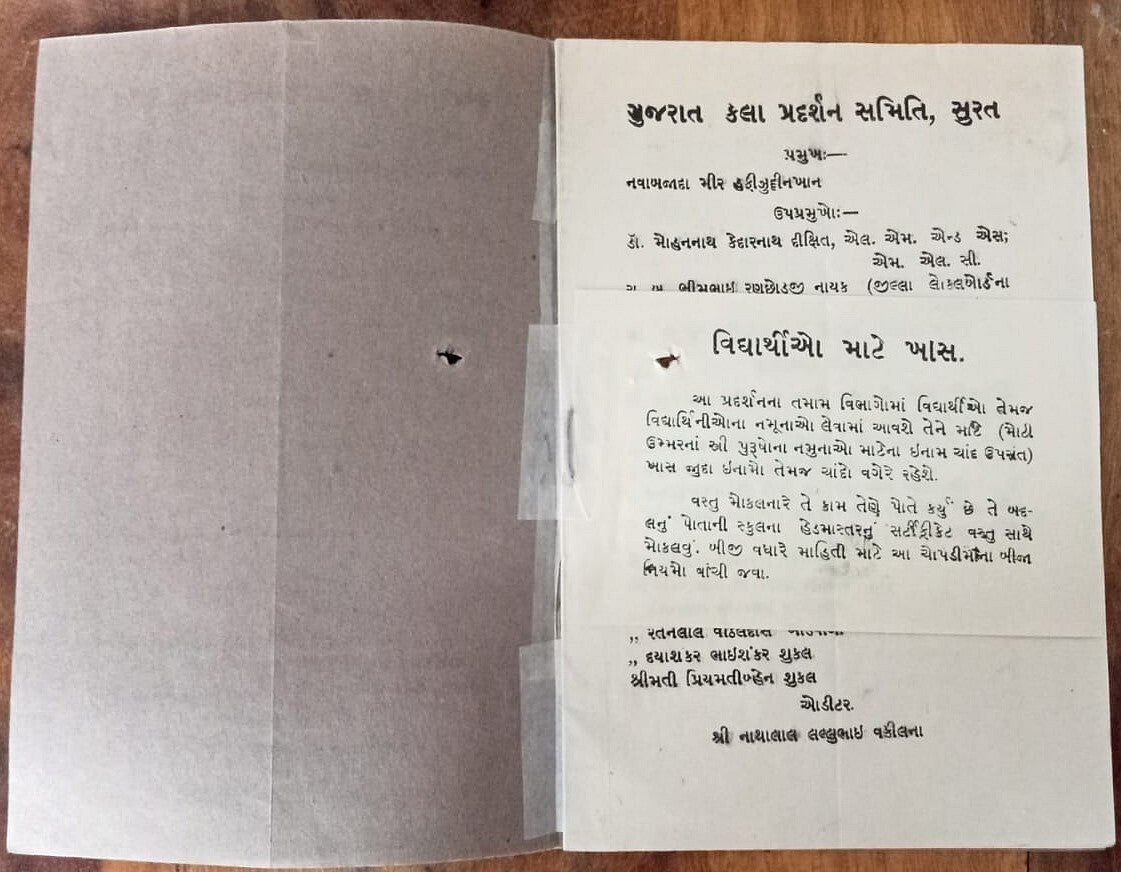 ગુજરાત કલા પ્રદર્શન સમિતિ, સુરત
પ્રમુખઃ—
નવાબજાદા મીર હફીઝુદ્દીનખાન
ઉપપ્રમુખોઃ—
ડૉ. મોહનનાથ કેદારનાથ દીક્ષિત, એલ. એમ. એન્ડ એસ;
એમ. એલ. સી.
ભીમભાઈ રણછોડજી નાયક (જીલ્લા લોકલબોર્ડના
વિદ્યાર્થીઓ માટે ખાસ.
આ પ્રદર્શનના તમામ વિભાગોમાં વિદ્યાર્થીઓ તેમજ
વિદ્યાર્થિનીઓના નમૂનાઓ લેવામાં આવશે તેને માટે (મોટી
ઉમ્મરનાં સ્ત્રી પુરૂષોના નમુનાઓ માટેના ઇનામ ચાંદ ઉપરાંત)
ખાસ જુદા ઇનામો તેમજ ચાંદો વગેરે રહેશે.
વસ્તુ મોકલનારે તે કામ તેણે પોતે કર્યું છે તે બદ-
લનું પોતાની સ્કુલના હેડમાસ્તરનું સર્ટીફીકેટ વસ્તુ સાથે
મોકલવું. બીજી વધારે માહિતી માટે આ ચોપડીમાંના બીજા
નિયમો વાંચી જવા.
,, રતનલાલ વીઠલદાસ
,, દયાશંકર ભાઇશંકર શુકલ
શ્રીમતી પ્રિયમતીબ્હેન શુકલ
ઓડીટર.
શ્રી નાથાલાલ લલ્લુભાઇ વકીલના